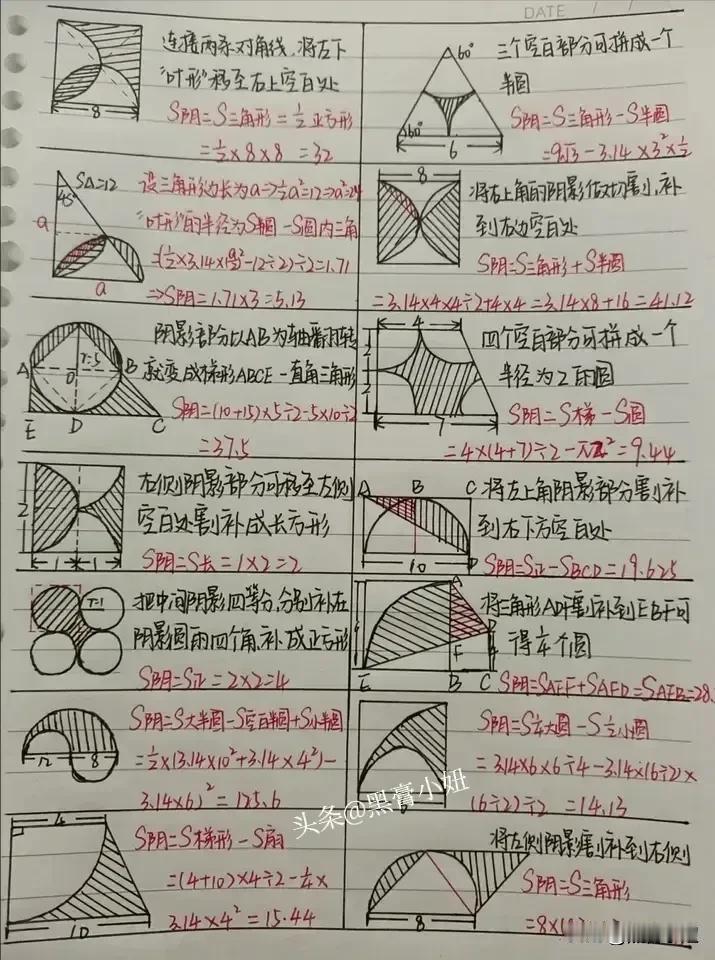 DATE / /
连接两条对角线,将左下
"叶形"移至右上空白处
S阴=S三角形=½正方形
=½×8×8 =32
8
60°
60°
6
三个空白部分可拼成一个
半圆
S阴=S三角形-S半圆
=9√3-3.14×3²×½
45°
S△=12
a
a
设三角形边长为a→½a²=12→a²=24
"叶形"的半径为S半圆-S圆内三角
⇒S阴=1.71×3=5.13
8
将右上角的阴影做切割,补
到右边空白处
S阴=S三角形+S半圆
=3.14×4×4÷2+4×4=3.14×8+16=41.12
A
O
r=5
B
E
D
C
阴影部分以AB为轴翻转
就变成梯形ABCE-直角三角形
S阴=(10+15)×5÷2-5×10÷2
=37.5
4
2
2
7
四个空白部分可拼成一个
半径为2的圆
S阴=S梯-S圆
=4×(4+7)÷2-π2²=9.44
2
1
1
右侧阴影部分可移至左侧
空白处割补成长方形
S阴=S长=1×2=2
A
B
C
D
10
将左上角阴影部分割补
到右下方空白处
S阴=S正-SBCD=19.625
r=1
把中间阴影四等分,分别补在
阴影圆的四个角,补成正方形
S阴=S正=2×2=4
A
D
F
E
B
C
将三角形ADF割补到EBF可
得¼个圆
S阴=SAEF+SAFD=SAEB=28.
12
8
S阴=S大半圆-S空白半圆+S小半圆
=½×(3.14×10²+3.14×4²)-
3.14×6)²=125.6
S阴=S¼大圆-S½小圆
=3.14×6×6÷4-3.14×(6÷2)×
(6÷2)÷2 =14.13
头条@黑膏小妞
4
10
S阴=S梯形-S扇
=(4+10)×4÷2-¼×
3.14×4²=15.44
8
将左侧阴影割补到右侧
S阴=S三角形
=8×(